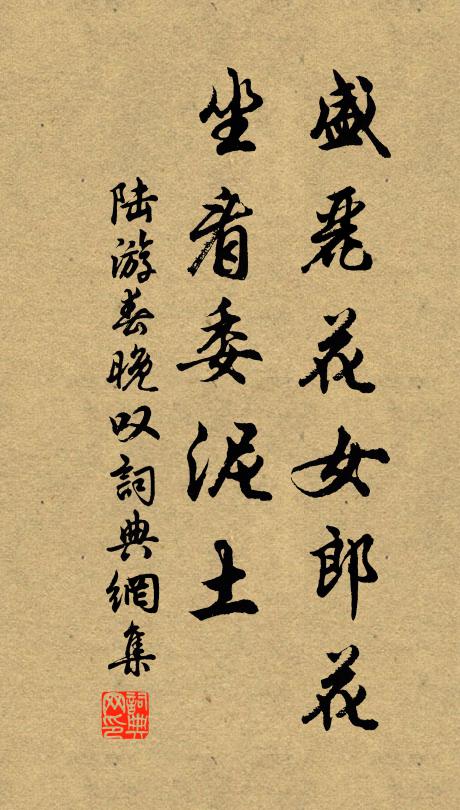 盛麗花女郎花
坐看委泥土
陆游春晚叹詞典網集
詞典
网印